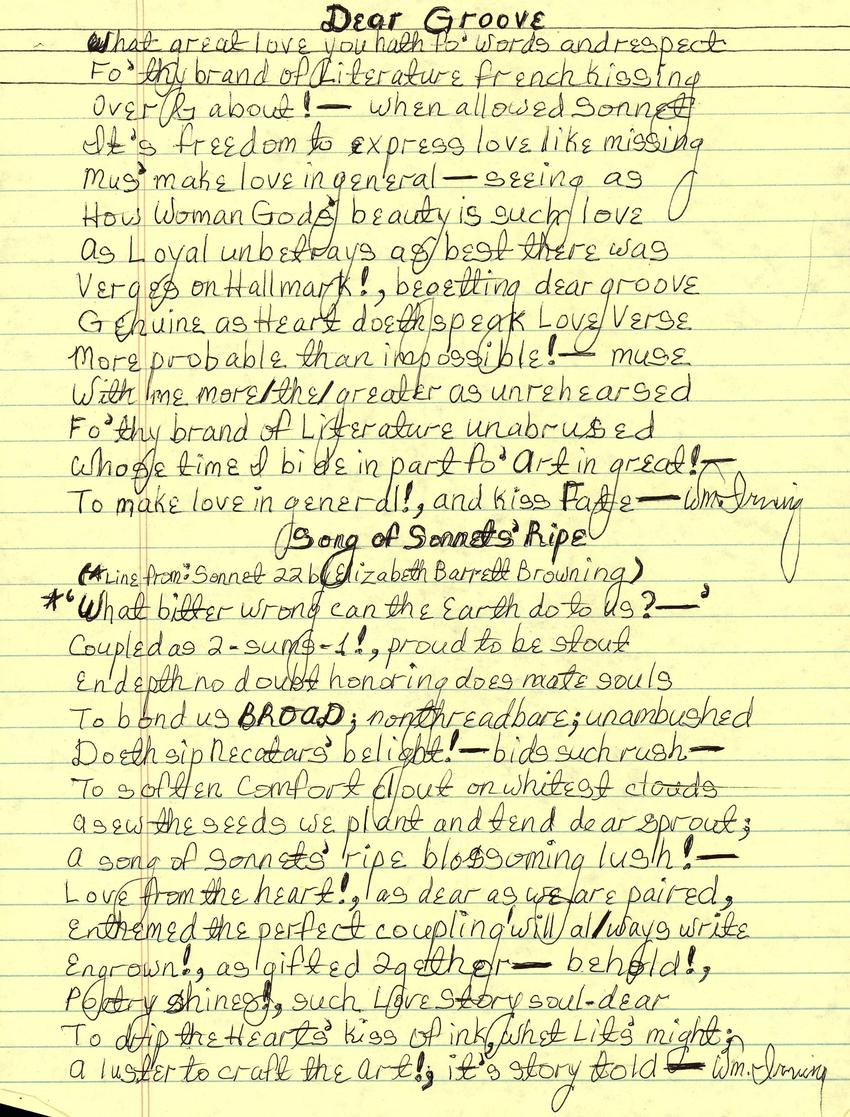 Dear Groove
What great love you hath fo' words and respect
Fo' thy brand of Literature french kissing
Over & about!— when allowed sonnet
It's freedom to express love like missing
Mus' make love in general — seeing as
How Woman Gods' beauty is such love
As Loyal unbetrays as best there was
Verges on Hallmark!, begetting dear groove
Genuine as Heart doeth speak Love Verse
More probable than impossible!— muse
With me more/the/greater as unrehearsed
Fo' thy brand of Literature unabrused
Whose time I bide in part fo' Art in great!—
To make love in general!, and kiss Fate — Wm. Irving
Song of Sonnets' Ripe
(*Line from: Sonnet 22 by Elizabeth Barrett Browning)
*'What bitter wrong can the Earth do to us?—'
Coupled as 2-sums-1!, proud to be stout
Endepth no doubt honoring does mate souls
To bond us BROAD; nonthreadbare; unambushed
Doeth sip Necatars' belight!— bids such rush—
To soften Comfort clout on whitest clouds
a sew the seeds we plant and tend dear sprout;
a song of Sonnets' ripe blossoming lush!—
Love from the heart!, as dear as we are paired,
Enthemed the perfect coupling will al/ways write
Engrown!, as gifted 2gether— behold!,
Poetry shines!, such Love story soul-dear
To drip the Hearts' kiss of ink, whet Lits' might;
a luster to craft the Art!; it's story told — Wm. Irving